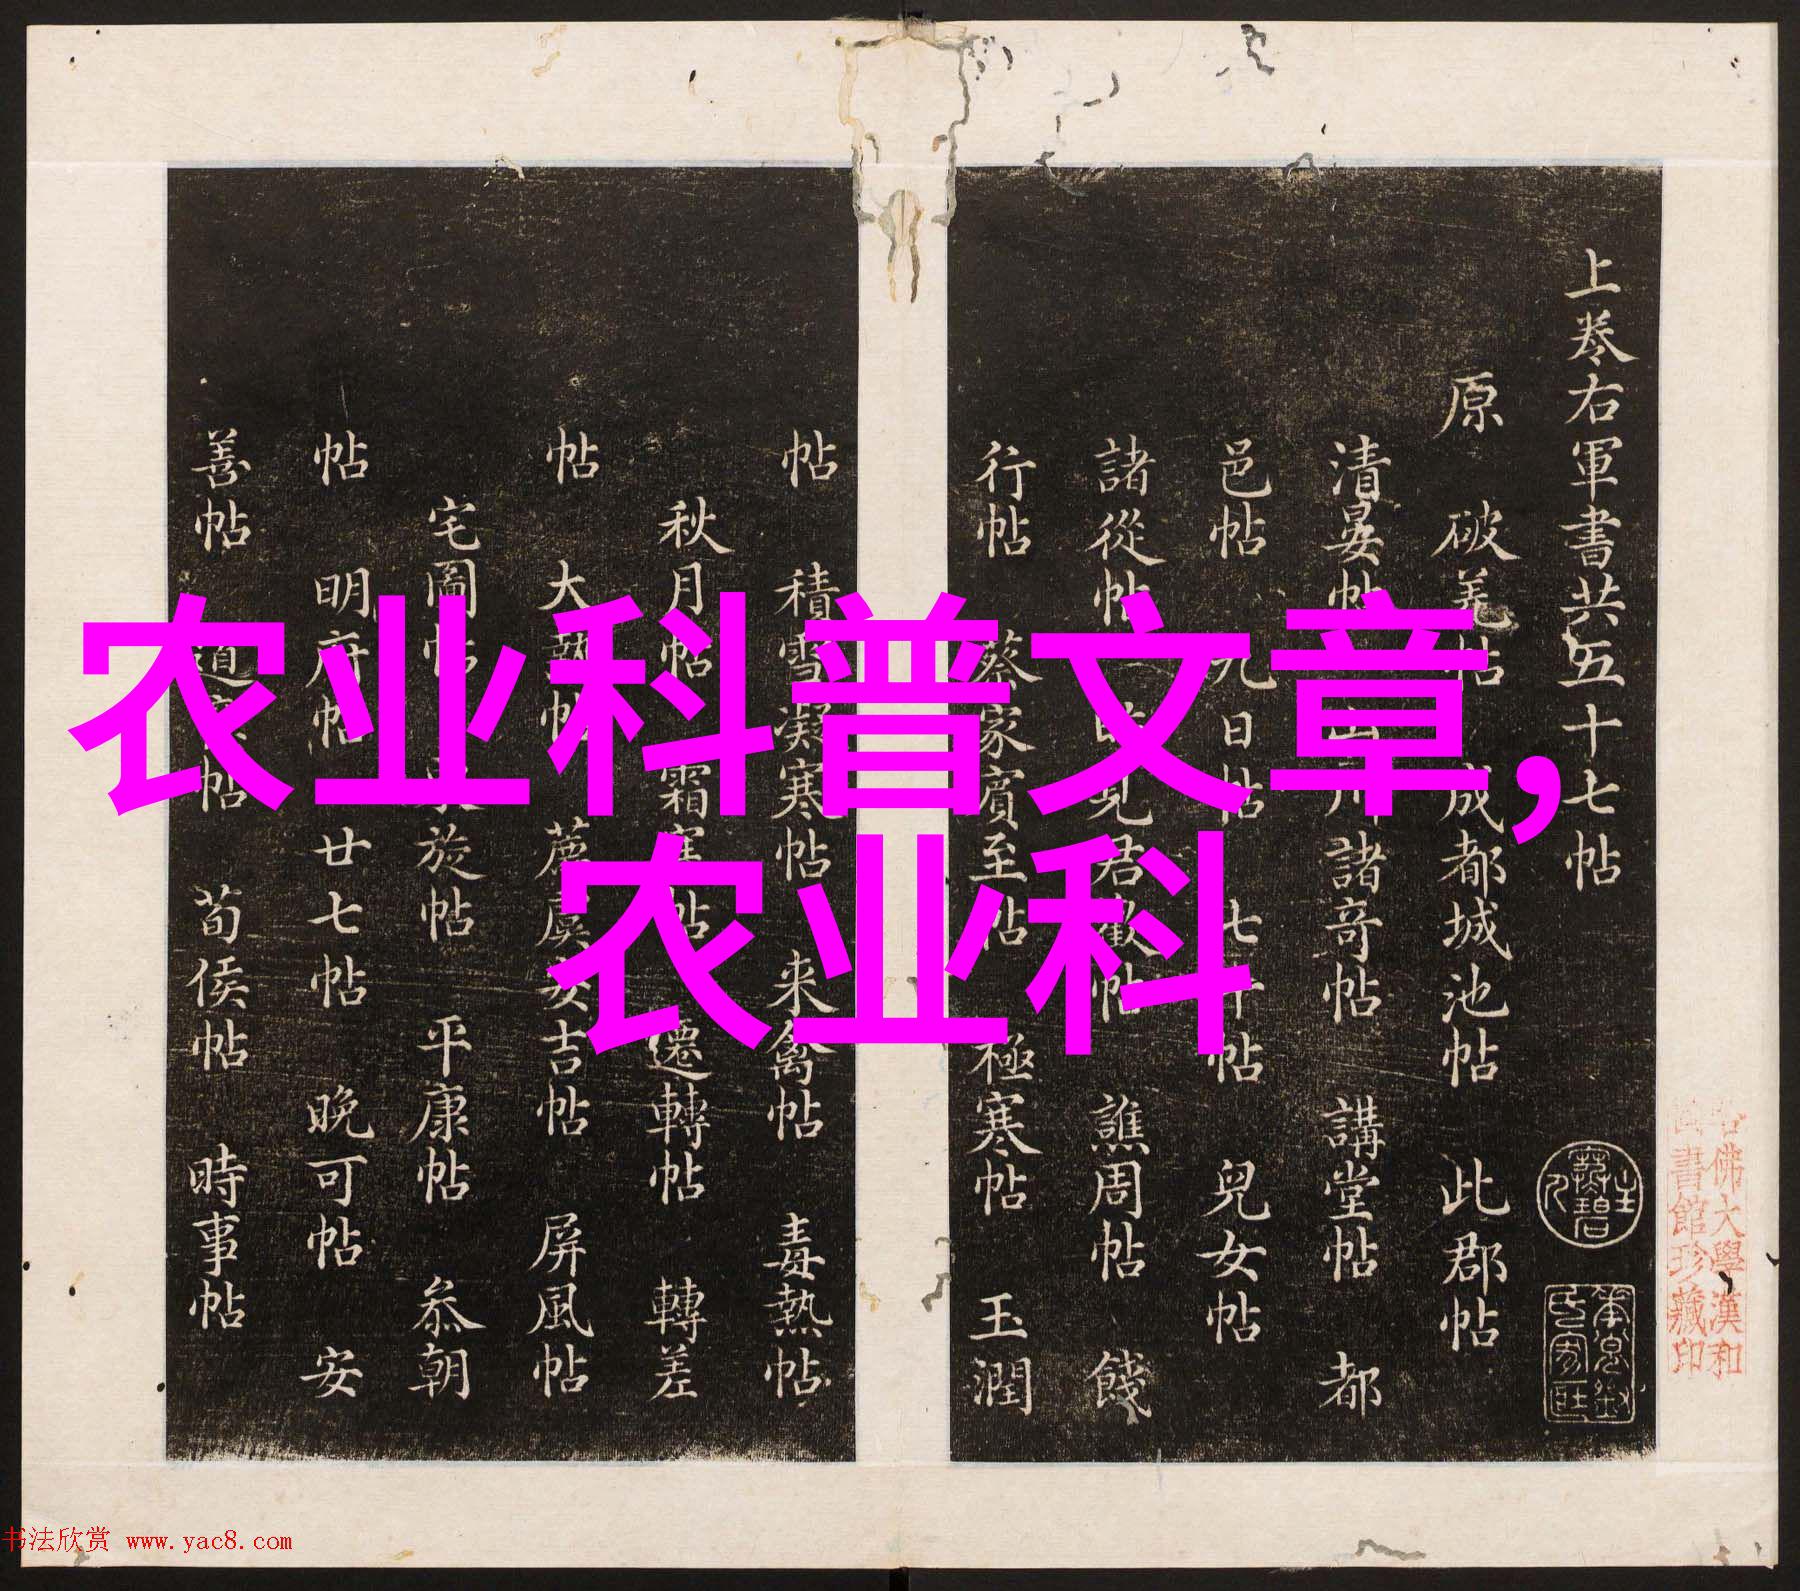 农业科普文章,
农业科
上卷右軍書共五十七帖
原 破羌帖 成都城池帖 此郡帖
清晏帖 山川諸奇帖 講堂帖 都
邑帖 九日帖 七十帖 兒女帖
諸從帖 昨見君歡帖 譙周帖 餞
行帖 蔡家賓至帖 極寒帖 玉潤
帖 積雪凝寒帖 来禽帖 毒熱帖
秋月帖 霜寒帖 遷轉帖 轉差
帖 大熱帖 虞安吉帖 屏風帖
宅圖帖 旋帖 平康帖 叅朝
帖 明府帖 廿七帖 晚可帖 安
善帖 帖 荀侯帖 時事帖
佛大學漢和
書館珍藏印
书法欣赏 www.yac8.com